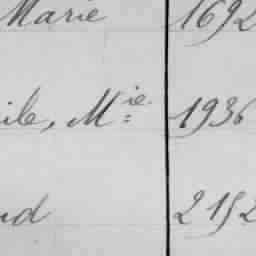 Marie 1692
ile, Mie 1936
nd 2152